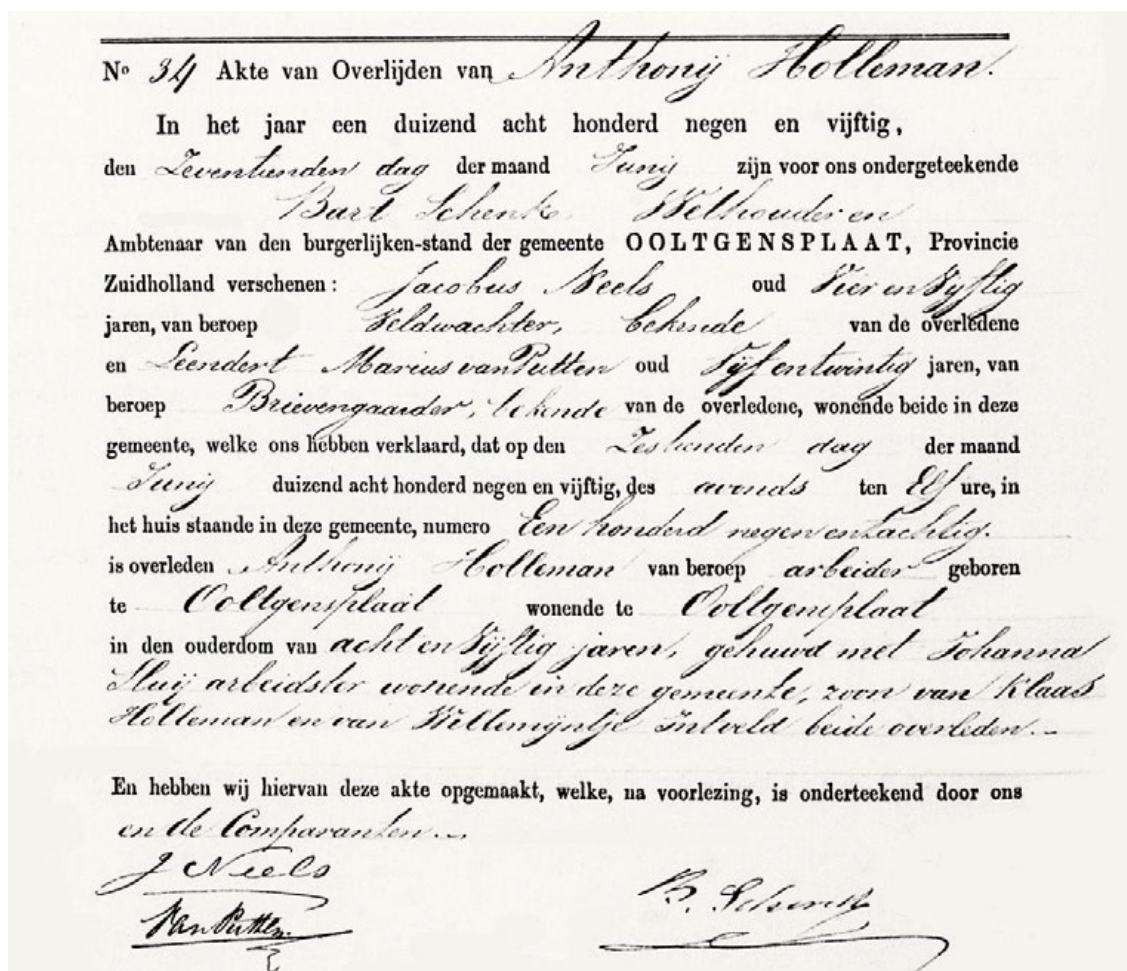 No 34 Akte van Overlijden van Anthonij Holleman.
In het jaar een duizend acht honderd negen en vijftig,
den Zeventienden dag der maand Junij zijn voor ons ondergeteekende
Bart Schenk, Wethouder en
Ambtenaar van den burgerlijken-stand der gemeente OOLTGENSPLAAT, Provincie
Zuidholland verschenen : Jacobus Neels oud Vier en Vijftig
jaren, van beroep Veldwachter, bekende van de overledene
en Leendert Marius van Putten oud Vijf en twintig jaren, van
beroep Brievengaarder, bekende van de overledene, wonende beide in deze
gemeente, welke ons hebben verklaard, dat op den Zestienden dag der maand
Junij duizend acht honderd negen en vijftig, des avonds ten Elf ure, in
het huis staande in deze gemeente, numero Een honderd negen en tachtig.
is overleden Anthonij Holleman van beroep arbeider geboren
te Ooltgensplaat wonende te Ooltgensplaat
in den ouderdom van acht en Vijftig jaren, gehuwd met Johanna
Sluij arbeidster wonende in deze gemeente, zoon van Klaas
Holleman en van Willemijntje Intveld beide overleden.
En hebben wij hiervan deze akte opgemaakt, welke, na voorlezing, is onderteekend door ons
en de Comparanten.
J Neels
Van Putten.
B. Schenk